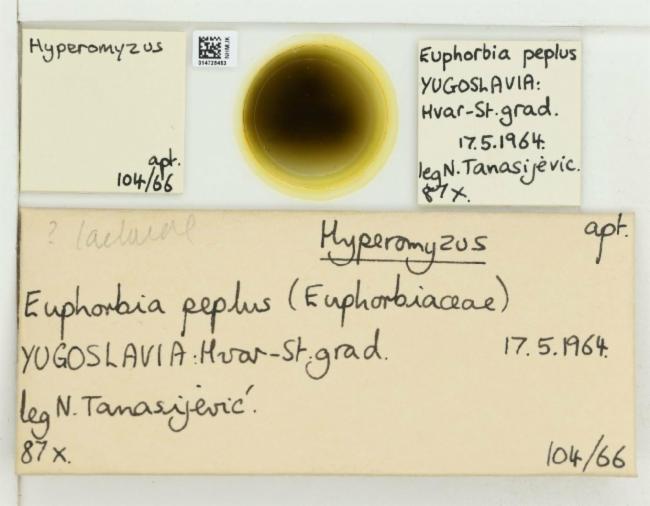 Hyperomyzus
apt.
104/66
NHMUK
014728483
Euphorbia peplus
YUGOSLAVIA:
Hvar-St.grad.
17.5.1964.
leg N. Tanasijević.
87x.
? lactucae
Hyperomyzus
apt.
Euphorbia peplus (Euphorbiaceae)
YUGOSLAVIA: Hvar-St.grad. 17.5.1964.
leg N. Tanasijević.
87x. 104/66